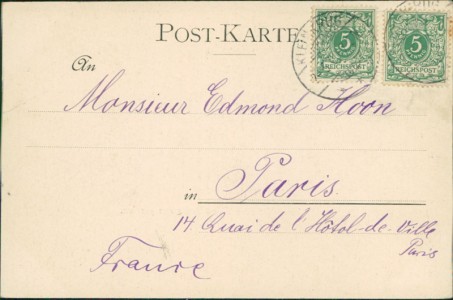 POST-KARTE
5 5
REICHSPOST REICHSPOST
An
Monsieur Edmond Hoon
in Paris.
14 Quai de l'Hôtol-de-Ville
Paris
France